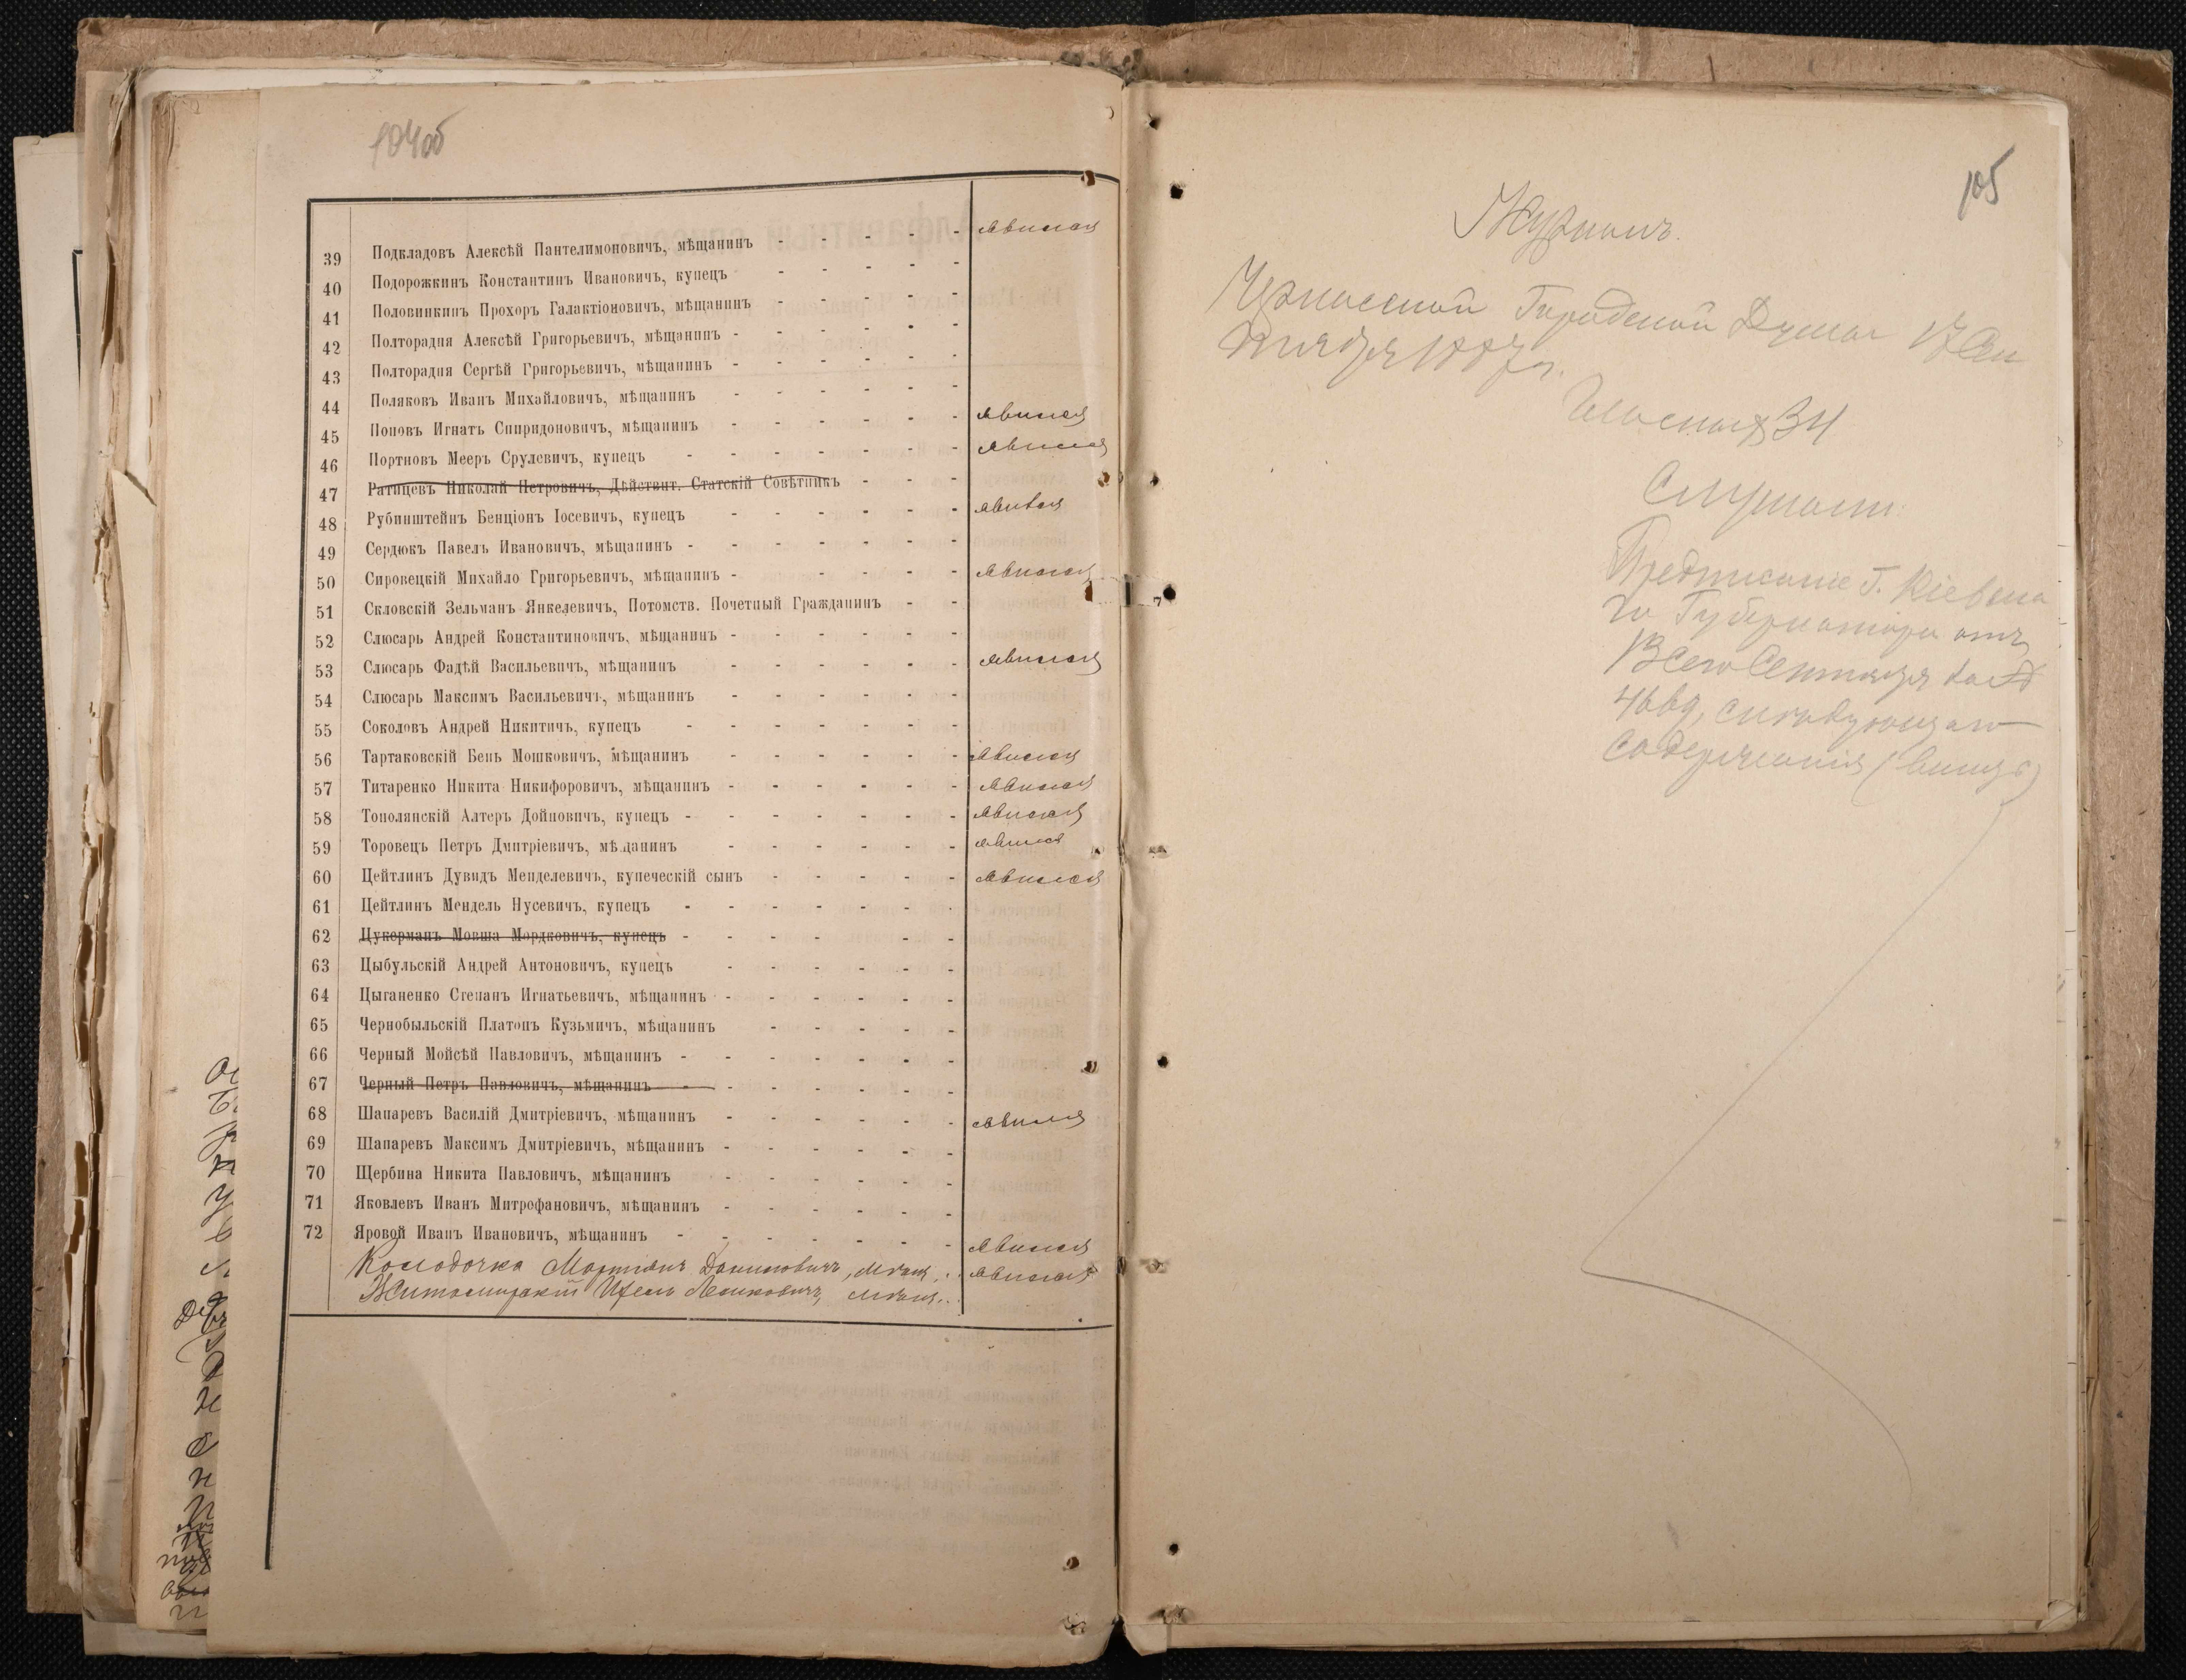 104об
39 Подкладовъ Алексѣй Пантелимоновичъ, мѣщанинъ - - - - - явился
40 Подорожкинъ Константинъ Ивановичъ, купецъ - - - - -
41 Половинкинъ Прохоръ Галактіоновичъ, мѣщанинъ - - - - -
42 Полторадня Алексѣй Григорьевичъ, мѣщанинъ - - - - - -
43 Полторадня Сергѣй Григорьевичъ, мѣщанинъ - - - - - -
44 Поляковъ Иванъ Михайловичъ, мѣщанинъ - - - - -
45 Поповъ Игнатъ Спиридоновичъ, мѣщанинъ - - - - - - явился
46 Портновъ Мееръ Срулевичъ, купецъ - - - - - - - явился
47 Ратицевъ Николай Петровичъ, Дѣйствит. Статскій Совѣтникъ - - -
48 Рубинштейнъ Бенціонъ Іосевичъ, купецъ - - - - - - явился
49 Сердюкъ Павелъ Ивановичъ, мѣщанинъ - - - - - - -
50 Сировецкій Михайло Григорьевичъ, мѣщанинъ - - - - - явился
51 Скловскій Зельманъ Янкелевичъ, Потомств. Почетный Гражданинъ - -
52 Слюсарь Андрей Константиновичъ, мѣщанинъ - - - - - -
53 Слюсарь Фадѣй Васильевичъ, мѣщанинъ - - - - - - явился
54 Слюсарь Максимъ Васильевичъ, мѣщанинъ - - - - - -
55 Соколовъ Андрей Никитичъ, купецъ - - - - - - -
56 Тартаковскій Бень Мошковичъ, мѣщанинъ - - - - - - явился
57 Титаренко Никита Никифоровичъ, мѣщанинъ - - - - - - явился
58 Тополянскій Алтеръ Дойновичъ, купецъ - - - - - - - явился
59 Торовецъ Петръ Дмитріевичъ, мѣщанинъ - - - - - - явился
60 Цейтлинъ Дувидъ Менделевичъ, купеческій сынъ - - - - - явился
61 Цейтлинъ Мендель Нусевичъ, купецъ - - - - - - -
62 Цукерманъ Мовша Мордковичъ, купецъ - - - - - -
63 Цыбульскій Андрей Антоновичъ, купецъ - - - - - -
64 Цыганенко Степанъ Игнатьевичъ, мѣщанинъ - - - - - -
65 Чернобыльскій Платонъ Кузьмичъ, мѣщанинъ - - - - -
66 Черный Мойсѣй Павловичъ, мѣщанинъ - - - - - - -
67 Черный Петръ Павловичъ, мѣщанинъ - - - - - - -
68 Шапаревъ Василій Дмитріевичъ, мѣщанинъ - - - - - - явился
69 Шапаревъ Максимъ Дмитріевичъ, мѣщанинъ - - - - - -
70 Щербина Никита Павловичъ, мѣщанинъ - - - - - -
71 Яковлевъ Иванъ Митрофановичъ, мѣщанинъ - - - - - -
72 Яровой Иванъ Ивановичъ, мѣщанинъ - - - - - - - явился
Колодочка Даниловичъ, мѣщ. явился
Житомирскій
105
Журналъ
Черкасской Городской Думы 17 Сен
тября 1887 г.
Гласныхъ 34
Слушали:
Предписаніе Г. Кіевска
го Губернатора отъ
13 сего Сентября за №
4669, слѣдующаго
содержанія (внизъ)